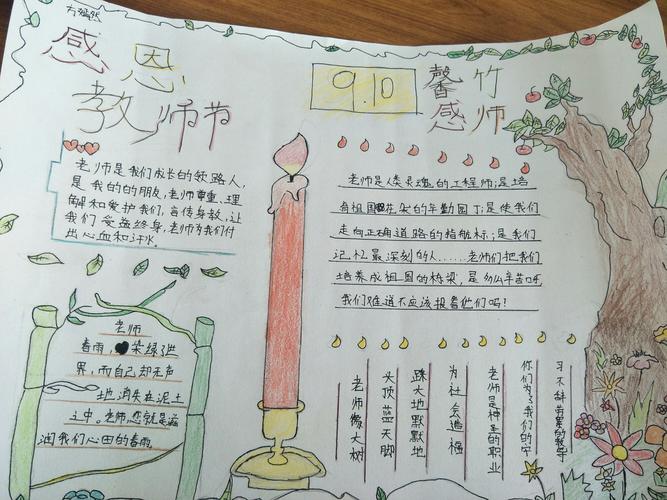 方嫣然
感恩
教师节
9.10
馨竹
感师
老师是我们成长的领路人,
是我的的朋友,老师尊重、理
解和爱护我们,言传身教,让
我们受益终身,老师为我们付
出心血和汗水。
老师是人类灵魂的工程师;是培
育祖国花朵的辛勤园丁;是使我们
走向正确道路的指航标;是我们
记忆最深刻的人……老师们把我们
培养成祖国的栋梁,是多么辛苦呀,
我们难道不应该报答他们吗!
老师
春雨,染绿了世
界,而自己却无声
地消失在泥土
之中。老师,您就是滋
润我们心田的春雨
老师像大树
头顶蓝天脚
踩大地默默地
为社会造福
老师是神圣的职业
你们为了我们的学
习不辞劳累的教导